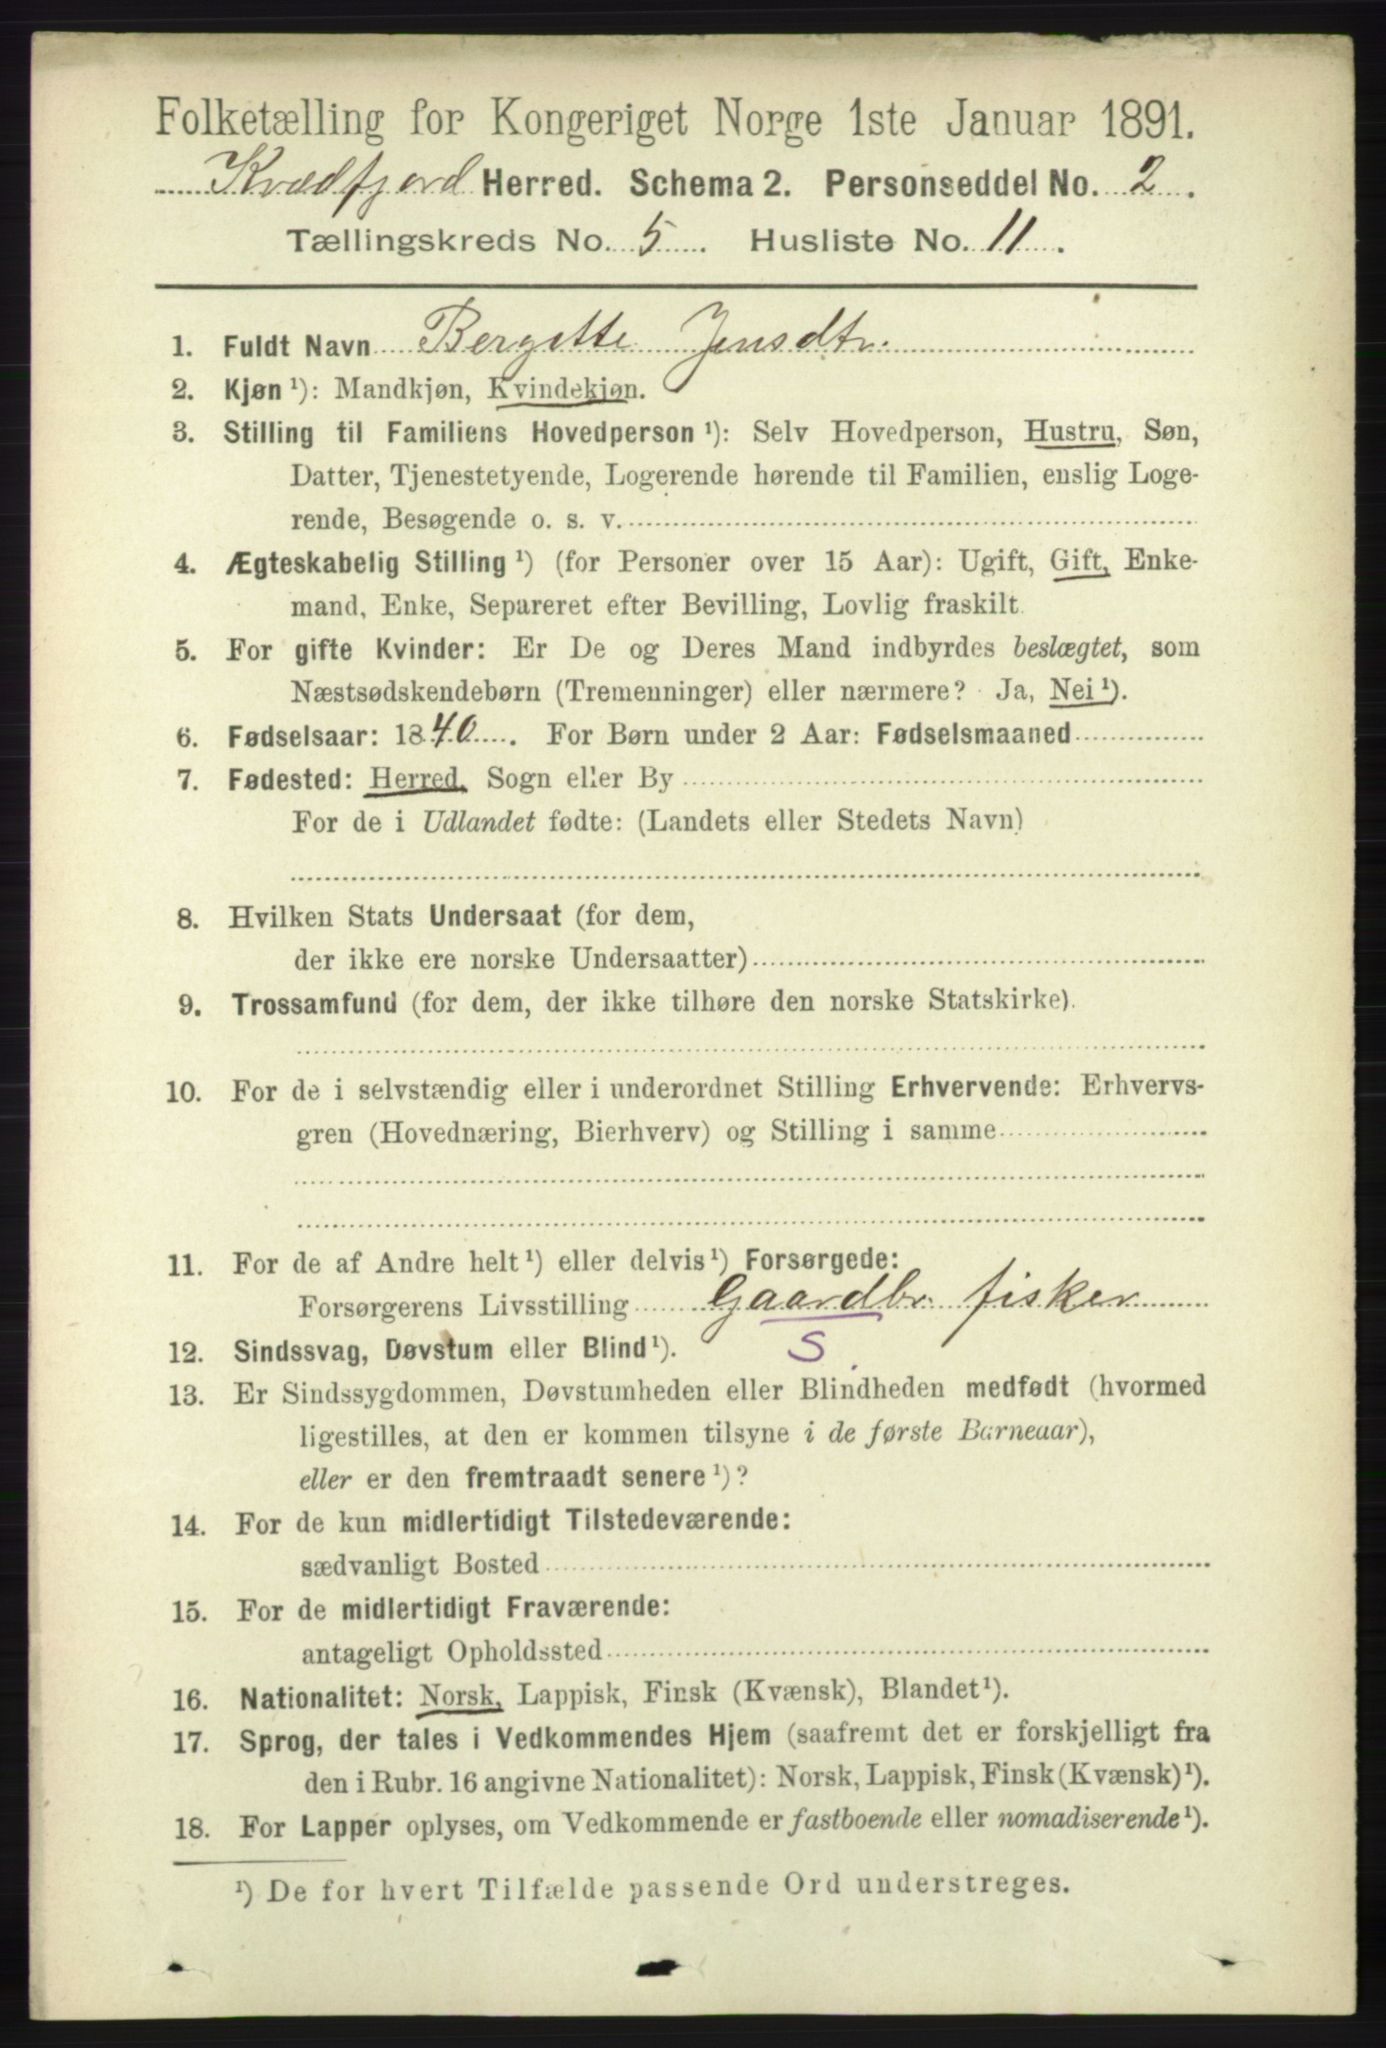 Folketælling for Kongeriget Norge 1ste Januar 1891.
Kvædfjord Herred. Schema 2. Personseddel No. 2.
Tællingskreds No. 5. Husliste No. 11.
1. Fuldt Navn Bergitte Jensdtr.
2. Kjøn ¹): Mandkjøn, Kvindekjøn.
3. Stilling til Familiens Hovedperson ¹): Selv Hovedperson, Hustru, Søn,
Datter, Tjenestetyende, Logerende hørende til Familien, enslig Loge-
rende, Besøgende o. s. v.
4. Ægteskabelig Stilling ¹) (for Personer over 15 Aar): Ugift, Gift, Enke-
mand, Enke, Separeret efter Bevilling, Lovlig fraskilt
5. For gifte Kvinder: Er De og Deres Mand indbyrdes beslægtet, som
Næstsødskendebørn (Tremenninger) eller nærmere? Ja, Nei ¹).
6. Fødselsaar: 1840. For Børn under 2 Aar: Fødselsmaaned
7. Fødested: Herred, Sogn eller By
For de i Udlandet fødte: (Landets eller Stedets Navn)
8. Hvilken Stats Undersaat (for dem,
der ikke ere norske Undersaatter)
9. Trossamfund (for dem, der ikke tilhøre den norske Statskirke).
10. For de i selvstændig eller i underordnet Stilling Erhvervende: Erhvervs-
gren (Hovednæring, Bierhverv) og Stilling i samme
11. For de af Andre helt ¹) eller delvis ¹) Forsørgede:
Forsørgerens Livsstilling Gaardbr. fisker
12. Sindssvag, Døvstum eller Blind ¹). S
13. Er Sindssygdommen, Døvstumheden eller Blindheden medfødt (hvormed
ligestilles, at den er kommen tilsyne i de første Barneaar),
eller er den fremtraadt senere ¹)?
14. For de kun midlertidigt Tilstedeværende:
sædvanligt Bosted
15. For de midlertidigt Fraværende:
antageligt Opholdssted
16. Nationalitet: Norsk, Lappisk, Finsk (Kvænsk), Blandet ¹).
17. Sprog, der tales i Vedkommendes Hjem (saafremt det er forskjelligt fra
den i Rubr. 16 angivne Nationalitet): Norsk, Lappisk, Finsk (Kvænsk) ¹).
18. For Lapper oplyses, om Vedkommende er fastboende eller nomadiserende ¹).
¹) De for hvert Tilfælde passende Ord understreges.